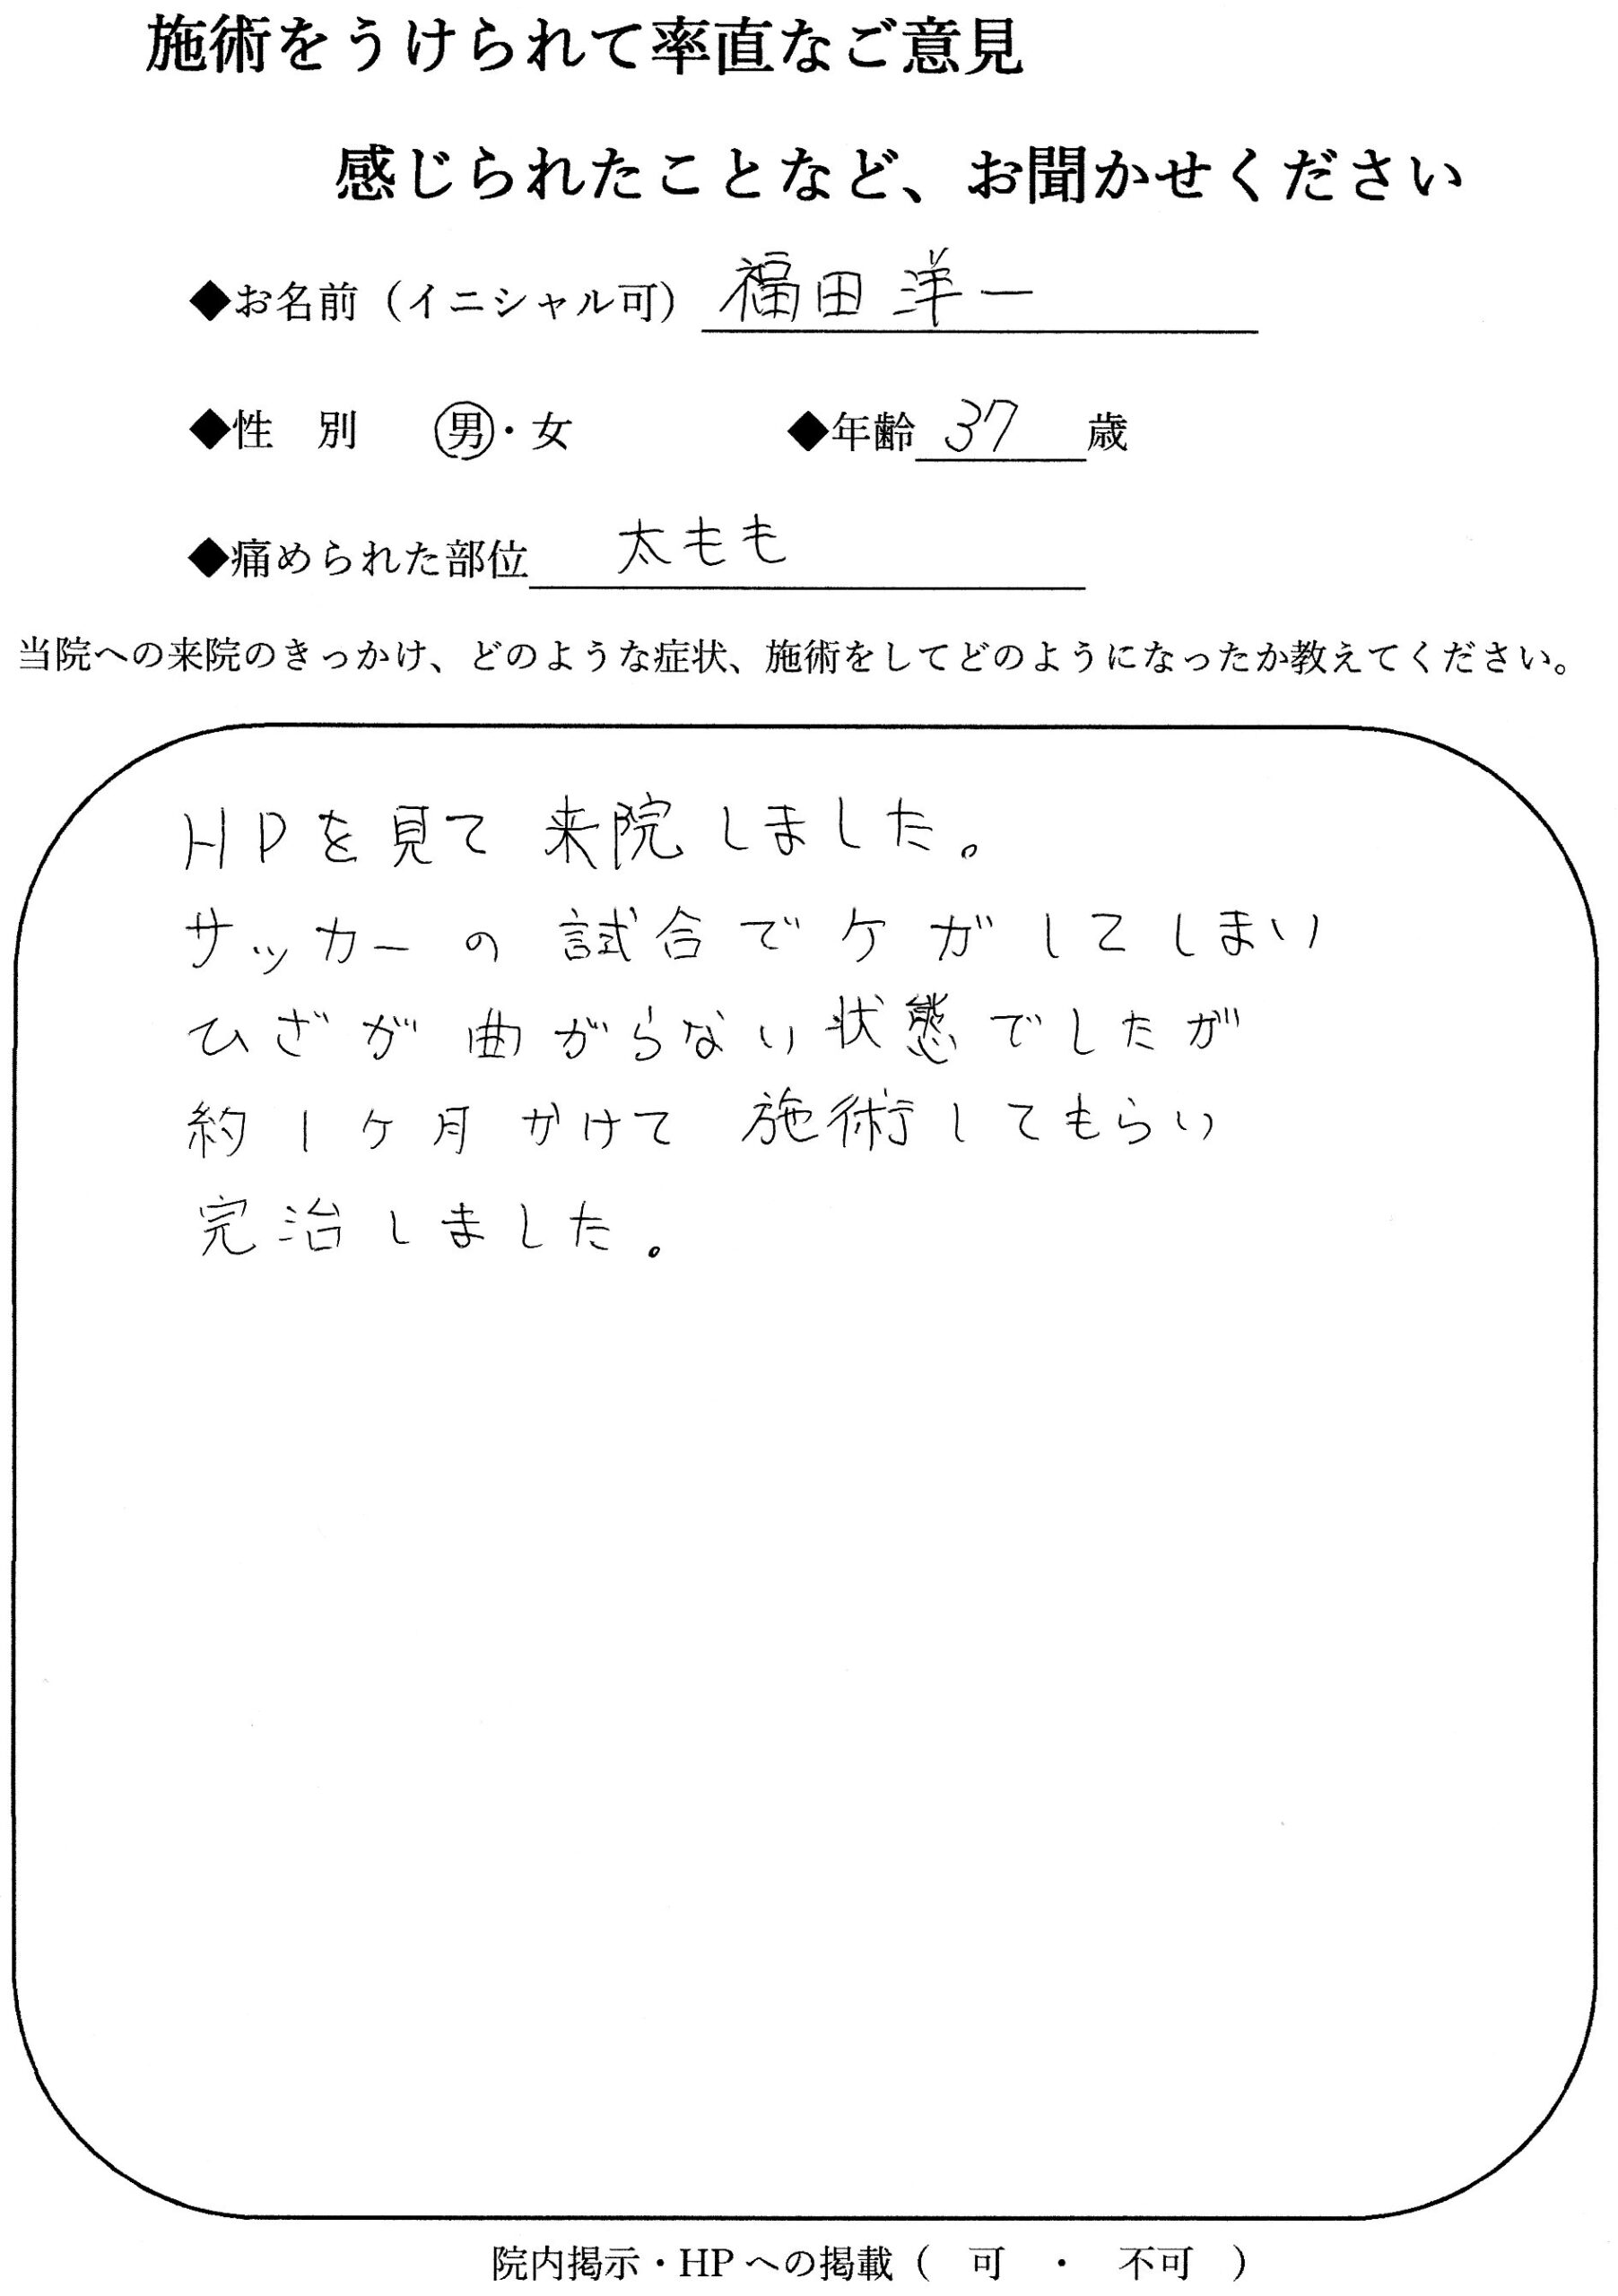 施術をうけられて率直なご意見
感じられたことなど、お聞かせください
◆お名前（イニシャル可） 福田 洋一
◆性　別　男・女　◆年齢 37 歳
◆痛められた部位 太もも
当院への来院のきっかけ、どのような症状、施術をしてどのようになったか教えてください。
HPを見て 来院しました。
サッカーの 試合でケガしてしまい
ひざが曲がらない状態でしたが
約1ヶ月かけて 施術してもらい
完治しました。
院内掲示・HPへの掲載（　可　・　不可　）